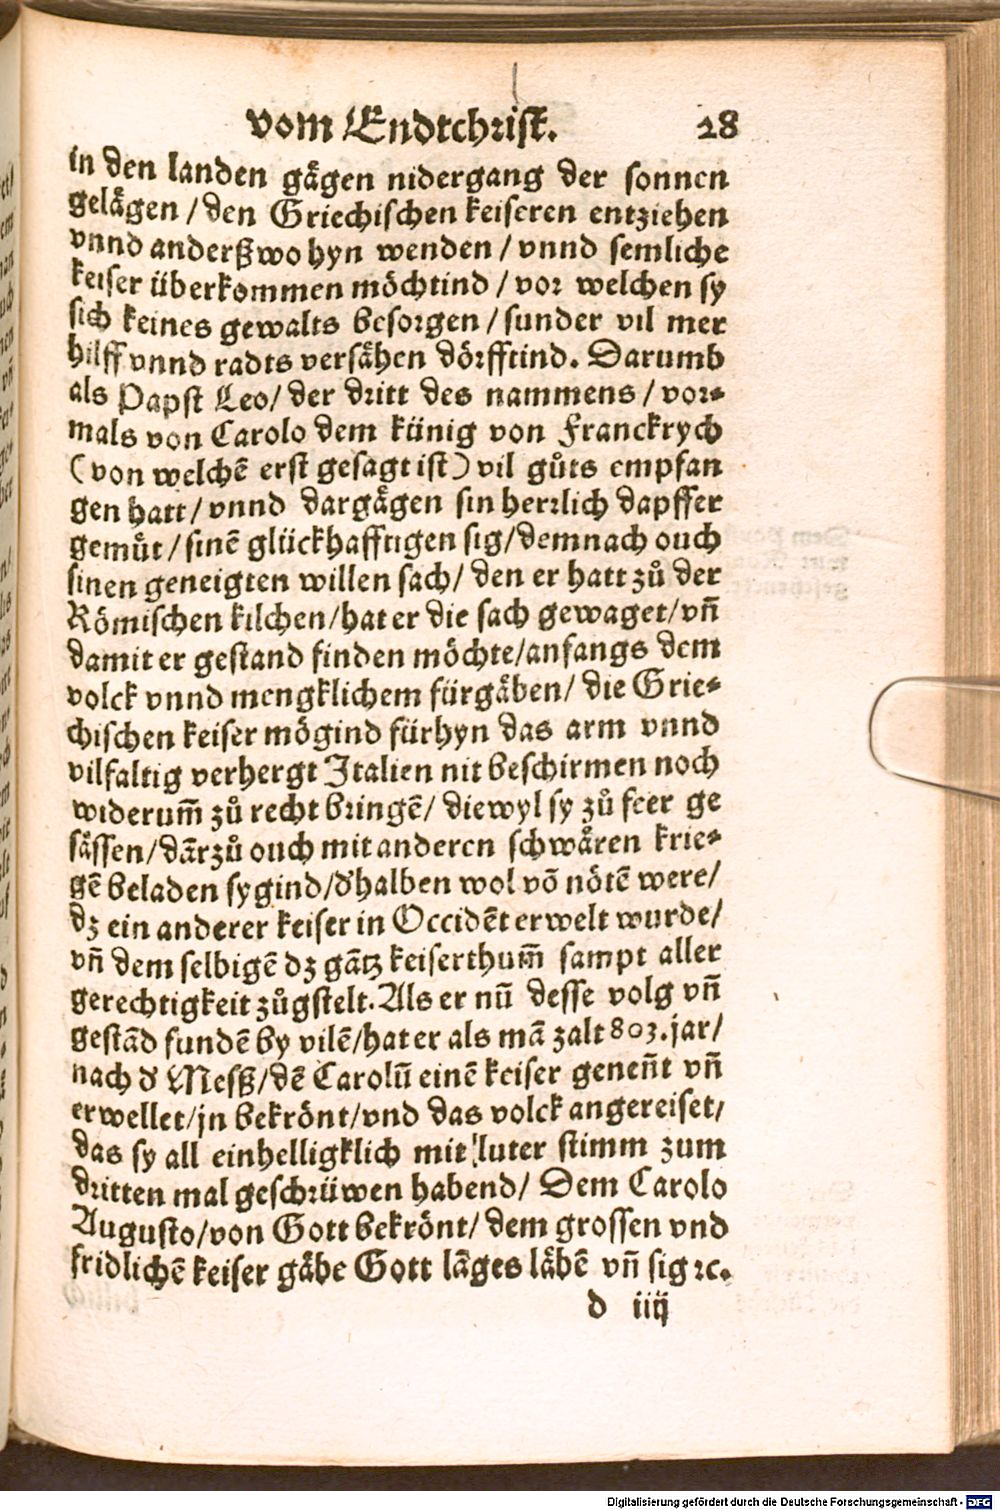 vom Endtchrist. 28
in den landen gaͤgen nidergang der sonnen
gelaͤgen / den Griechischen keiseren entziehen
vnnd anderßwo hyn wenden / vnnd semliche
keiser überkommen moͤchtind / vor welchen sy
sich keines gewalts besorgen / sunder vil mer
hilff vnnd radts versaͤhen doͤrfftind. Darumb
als Papst Leo / der dritt des nammens / vor⸗
mals von Carolo dem künig von Franckrych
(von welchē erst gesagt ist) vil gůts empfan
gen hatt / vnnd dargaͤgen sin herrlich dapffer
gemůt / sinē glückhafftigen sig / demnach ouch
sinen geneigten willen sach / den er hatt zů der
Roͤmischen kilchen / hat er die sach gewaget / vn̄
damit er gestand finden moͤchte / anfangs dem
volck vnnd mengklichem fürgaͤben / die Grie⸗
chischen keiser moͤgind fürhyn das arm vnnd
vilfaltig verhergt Italien nit beschirmen noch
widerum̄ zů recht bringē / diewyl sy zů feer ge
saͤssen / dārzů ouch mit anderen schwaͤren krie⸗
gē beladen sygind / d'halben wol vō noͤtē were /
dz ein anderer keiser in Occidēt erwelt wurde /
vn̄ dem selbigē dz gātz keiserthum̄ sampt aller
gerechtigkeit zůgstelt. Als er nū desse volg vn̄
gestād fundē by vilē / hat er als mā zalt 803. jar /
nach d' Messß / dē Carolū einē keiser genen̄t vn̄
erwellet / jn bekroͤnt / vnd das volck angereiset /
das sy all einhelligklich mit luter stimm zum
dritten mal geschrüwen habend / Dem Carolo
Augusto / von Gott bekroͤnt / dem grossen vnd
fridlichē keiser gaͤbe Gott lāges laͤbē vn̄ sig ꝛc.
d iiij
Digitalisierung gefördert durch die Deutsche Forschungsgemeinschaft - DFG